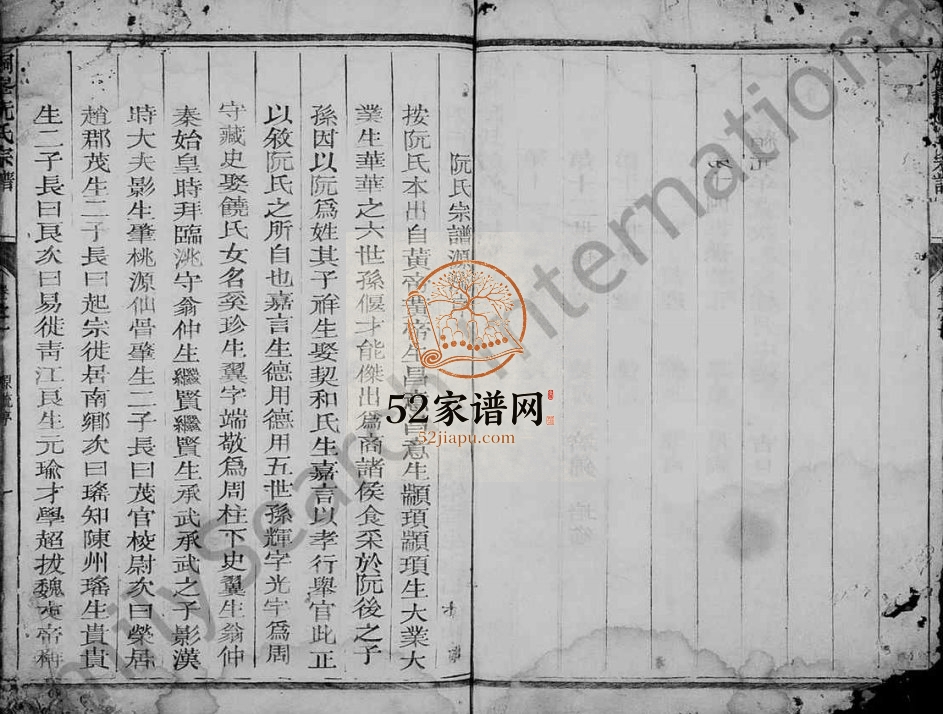 阮氏宗譜源
按阮氏本出自黃帝黃帝生昌意昌意生顓頊顓頊生大業大
業生華華之六世孫偃才能傑出爲商諸侯食采於阮後之子
孫因以阮爲姓其子祥生娶契和氏生嘉言以孝行舉官此正
以敘阮氏之所自也嘉言生德用德用五世孫輝字光宇爲周
守藏史娶饒氏女名奚珍生翼字端敬爲周柱下史翼生翁仲
秦始皇時拜臨洮守翁仲生繼賢繼賢生承武承武之子影漢
時大夫影生肇桃源仙骨肇生二子長曰茂官校尉次曰榮居
趙郡茂生二子長曰起宗徙居南鄉次曰瑤知陳州瑤生貴貴
生二子長曰艮次曰易徙青江艮生元瑜才學超拔魏文帝
阮氏宗譜
一
52家谱网
52jiapu.com
FamilySearch International